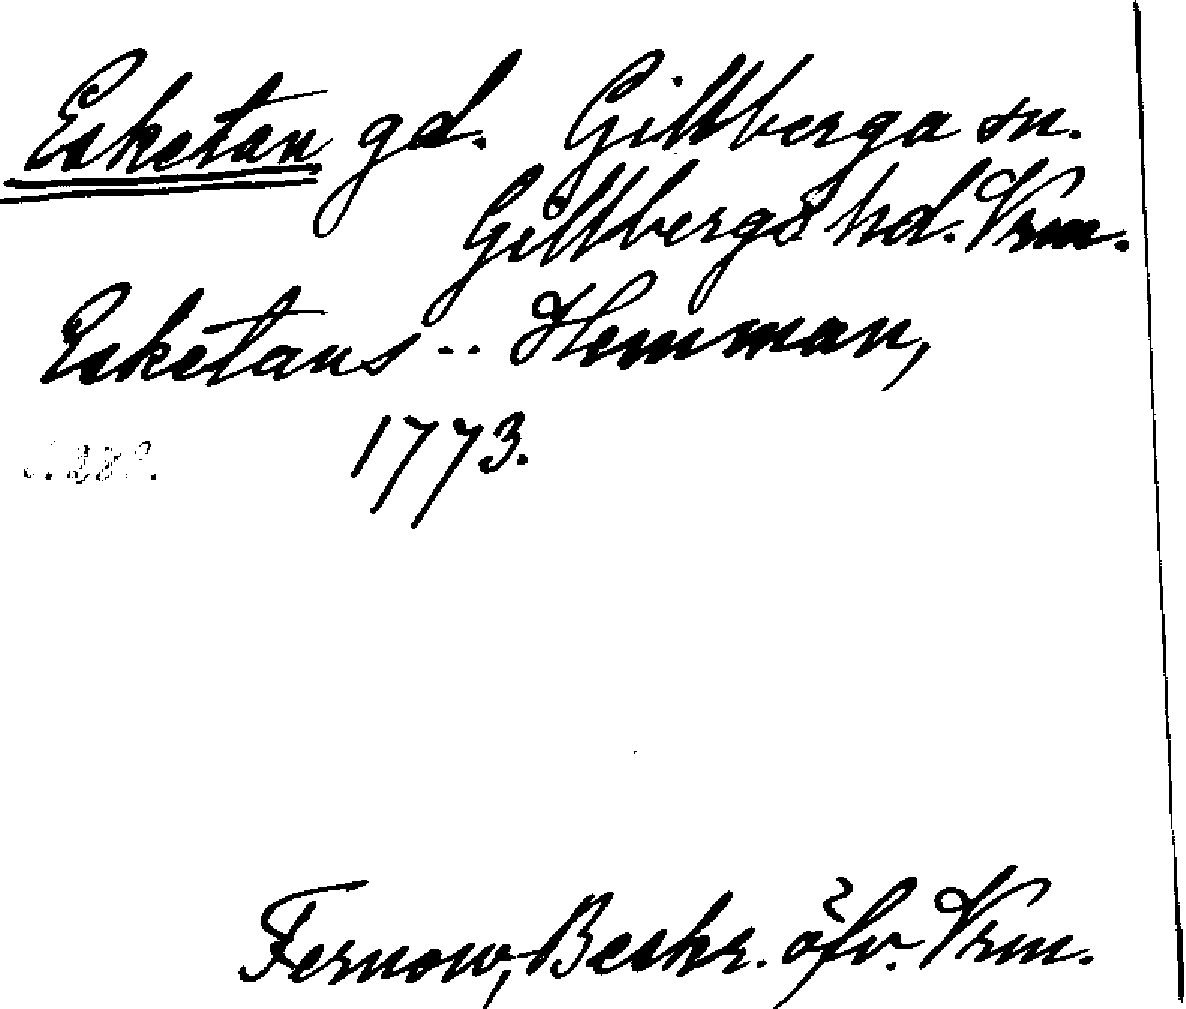 Esketan gd. Gillberga sn.
Gillbergs hd. Vrm.
Esketans -- Hemman,
1773.
Fernow, Beskr. öfv. Vrm.